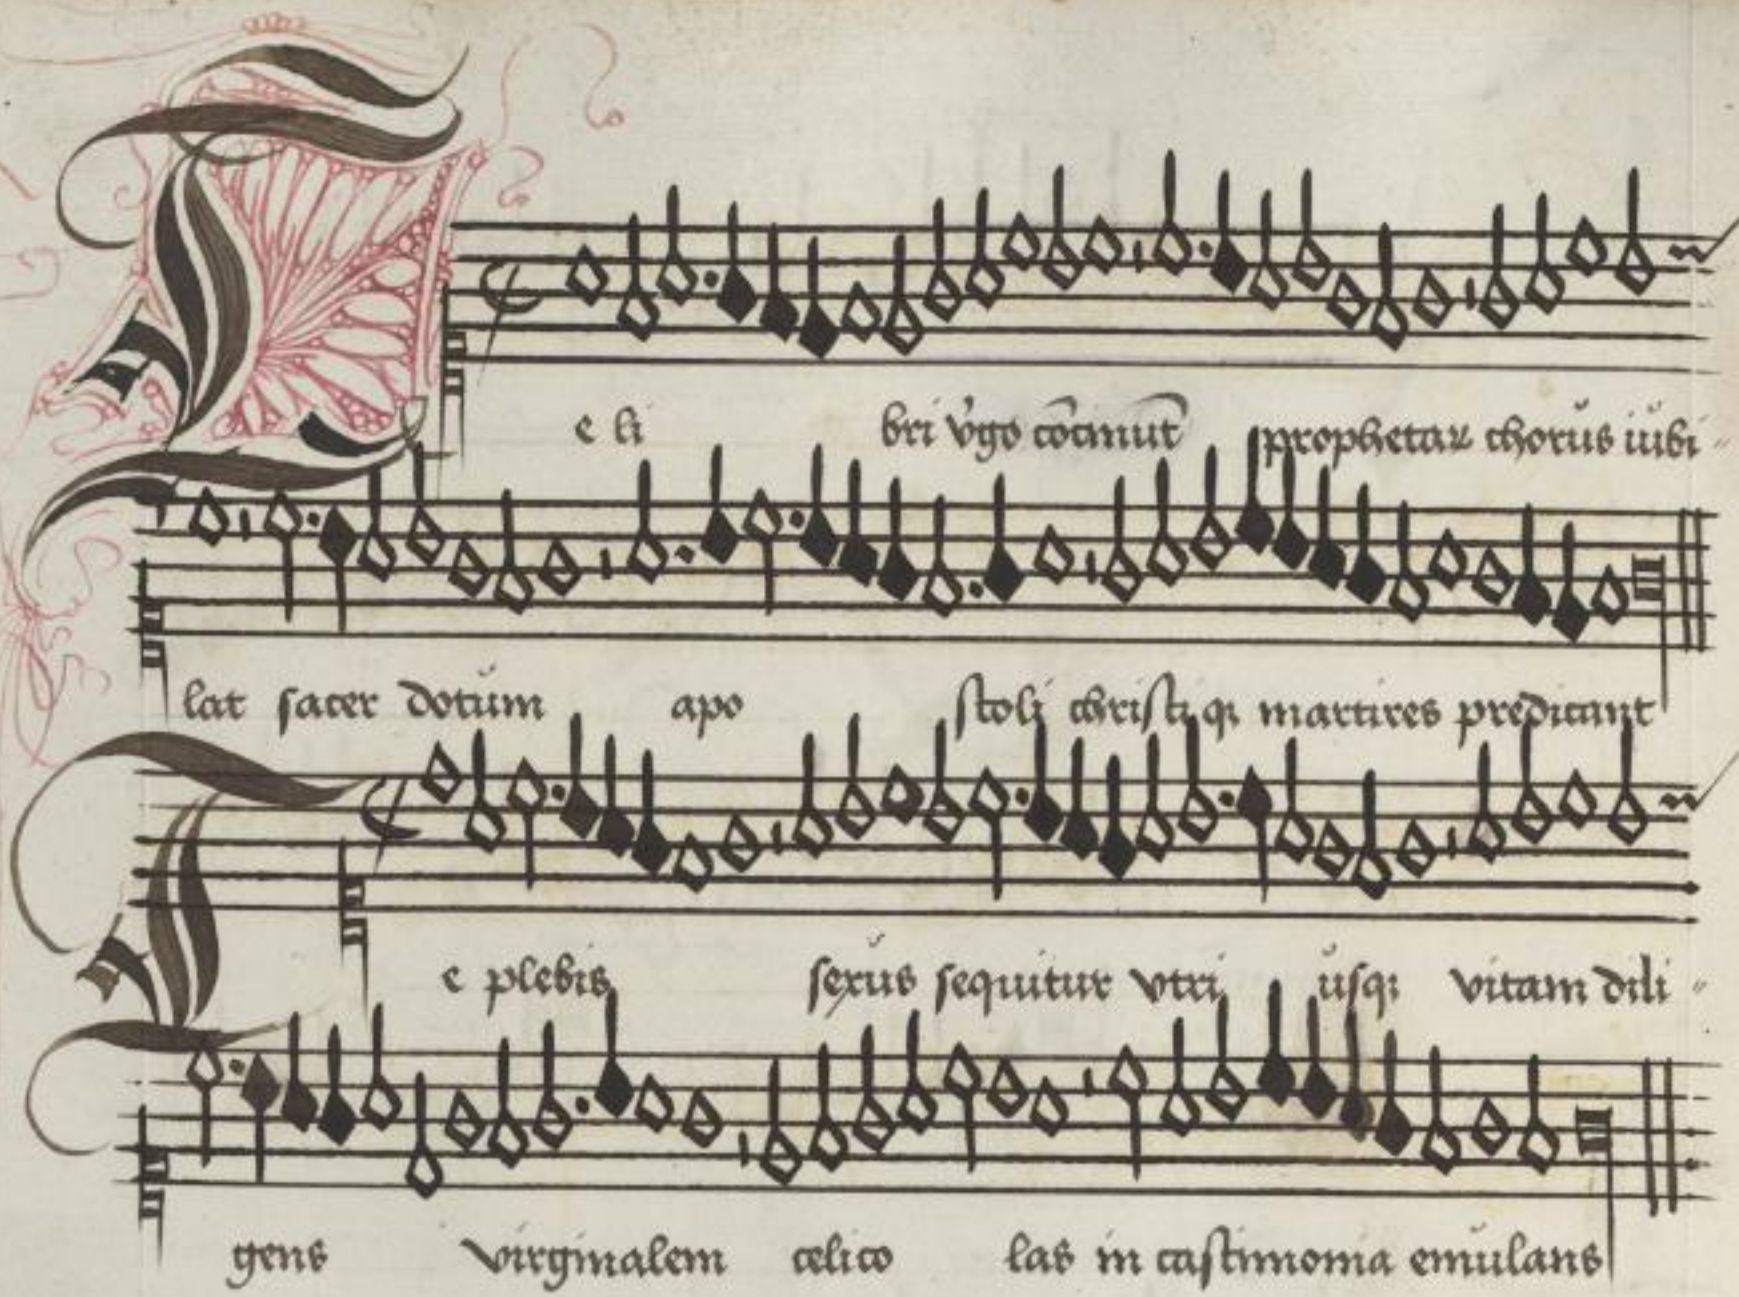 Te li bri v̓go cōcinūt prophetaꝝ chorus iubi-
lat sacer dotum apo stoli christiqꝫ martires predicant
Te plebis sexus sequitur vtri usqꝫ vitam dili-
gens virginalem celico las in castimonia emulans